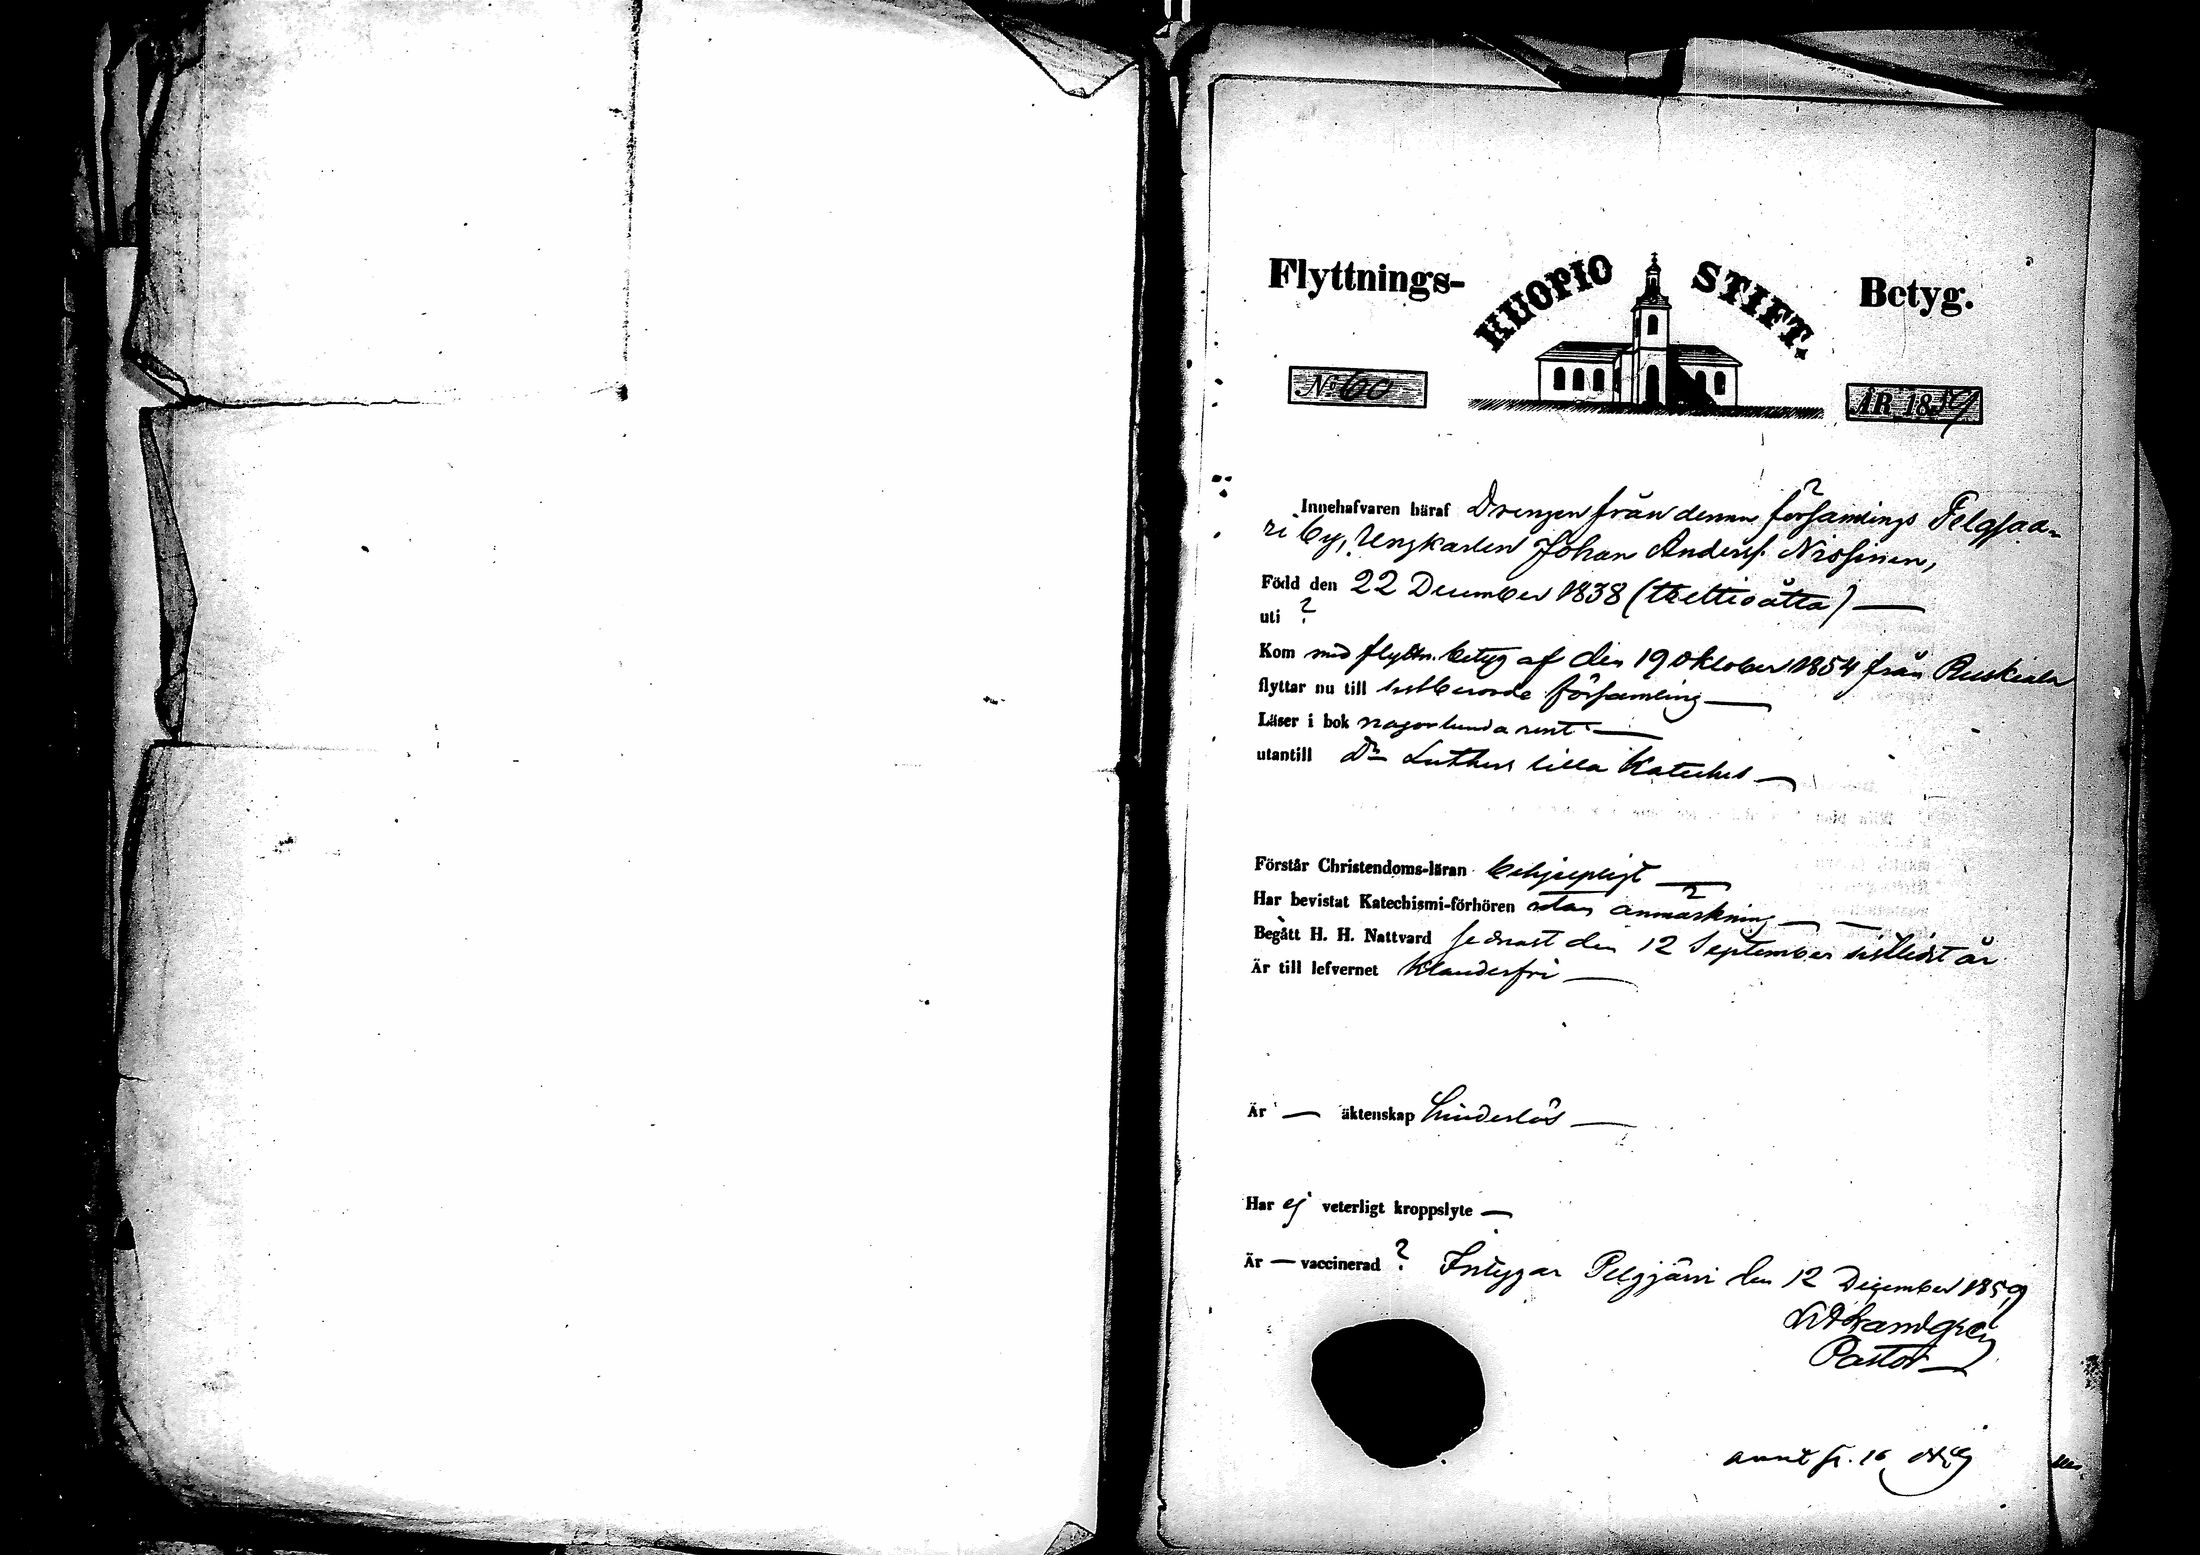 Flyttnings- KUOPIO STIFT. Betyg.
No 60 ÅR 1859
Innehafvaren häraf Drengen från denne församlings Pelgjaa-
ri by, Ungkarlen Johan Anderss. Nissinen,
Född den 22 December 1838 (trettioåtta) —
uti ?
Kom med flyttn. betyg af den 19 oktober 1854 från Ruskiala
flyttar nu till församling —
Läser i bok någorlunda rent —
utantill Dr Luthers lilla Kateches —
Förstår Christendoms-läran behjelpligt —
Har bevistat Katechismi-förhören utan anmärkning —
Begått H. H. Nattvard sednast den 12 September sistledit år
Är till lefvernet klanderfri —
Är — äktenskap hinderlös —
Har ej veterligt kroppslyte —
Är — vaccinerad ? Intygar Pelgjärvi den 12 December 1859
Landgren
Pastor